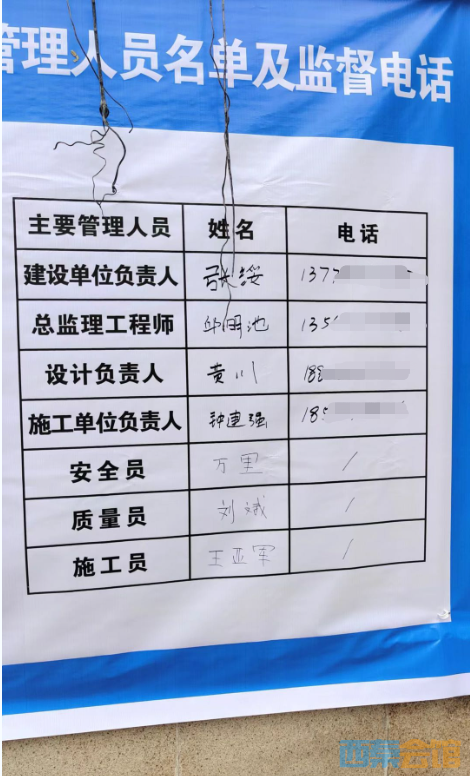 管理人员名单及监督电话
主要管理人员 姓名 电话
建设单位负责人 张绥 137
总监理工程师 邱明池 135
设计负责人 黄川 188
施工单位负责人 钟建强 185
安全员 万里 /
质量员 刘斌 /
施工员 王亚军 /
西祠会馆